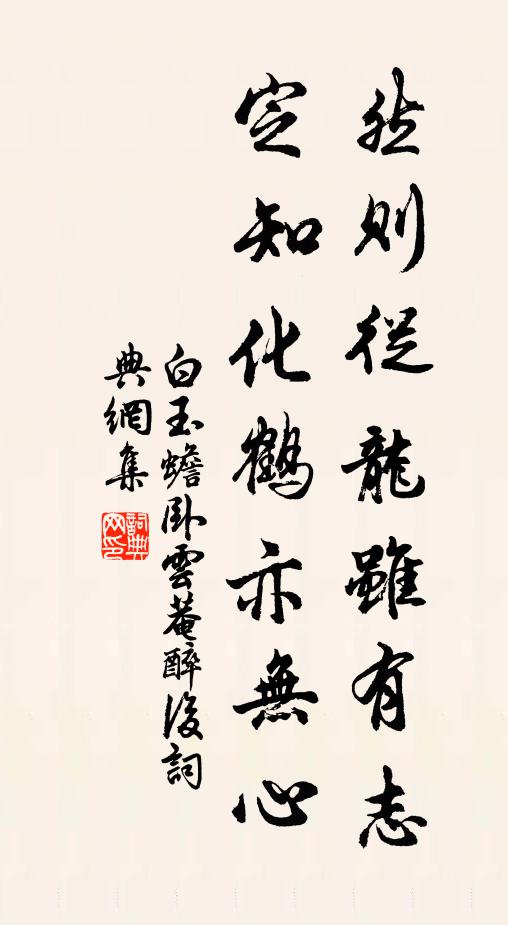 然則從龍雖有志
定知化鶴亦無心
白玉蟾臥雲菴醉後詞
典網集
詞典網印